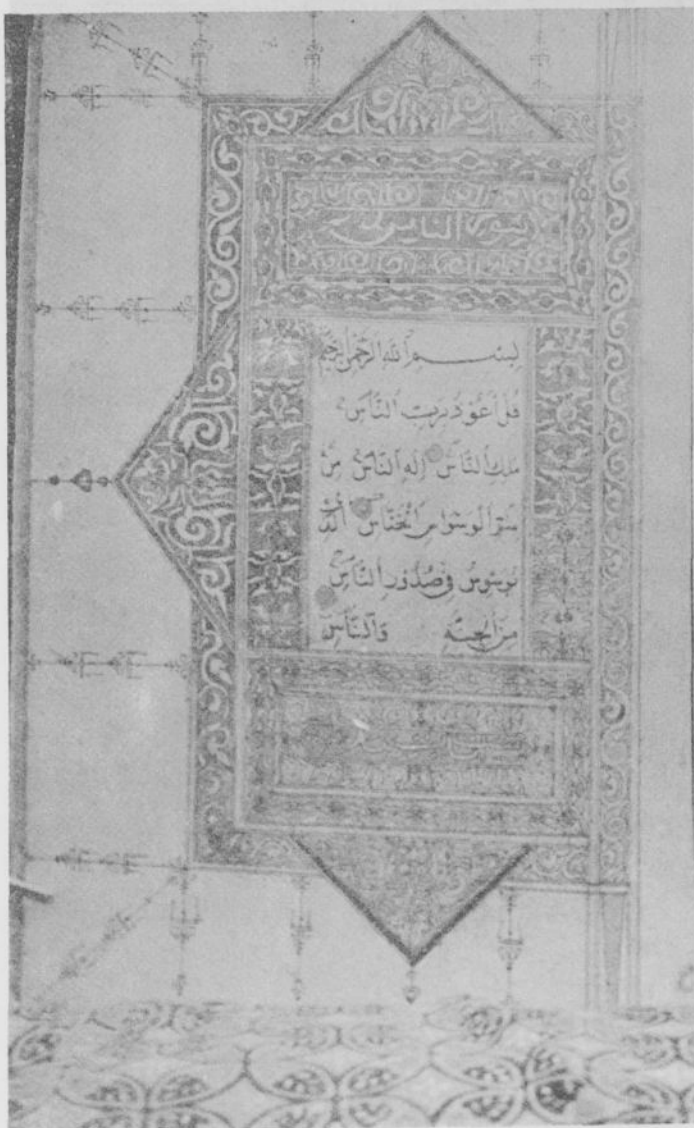 سورة الناس
بسم الله الرحمن الرحيم
قل أعوذ برب الناس
ملك الناس إله الناس من
شر الوسواس الخناس الذي
يوسوس في صدور الناس
من الجنة والناس